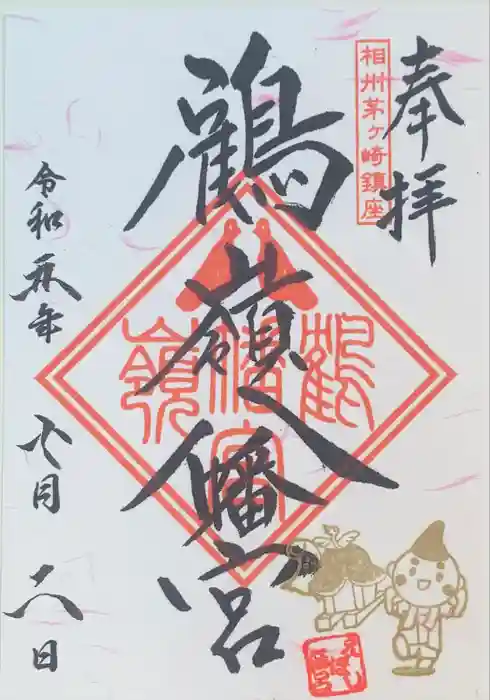 奉拝
相州茅ヶ崎鎮座
鶴嶺八幡宮
鶴
幡宮
嶺
令和元年 月 日
えぼし
麻呂